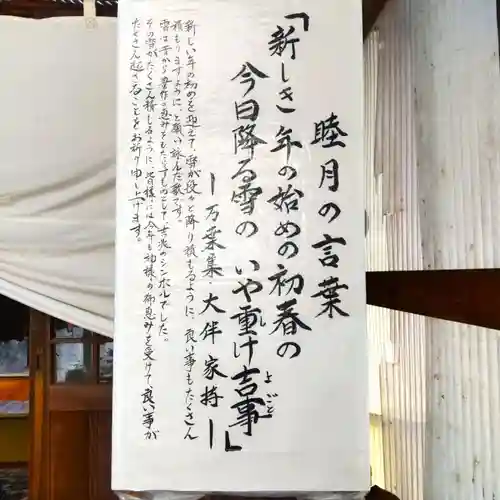 睦月の言葉
「新しき年の始めの初春の
今日降る雪の いや重け吉事」
しよごと
ー万葉集・大伴家持ー
新しい年の初めを迎えて、雪が段々と降り積もるように、良い事もたくさん
積もりますように、と願い詠んだ歌です。
雪は昔から豊作の恵みをもたらすものとして、吉兆のシンボルでした。
その雪がたくさん積もるように、皆様には今年も神様の御恵みを受けて、良い事が
たくさん起きることをお祈り申し上げます。